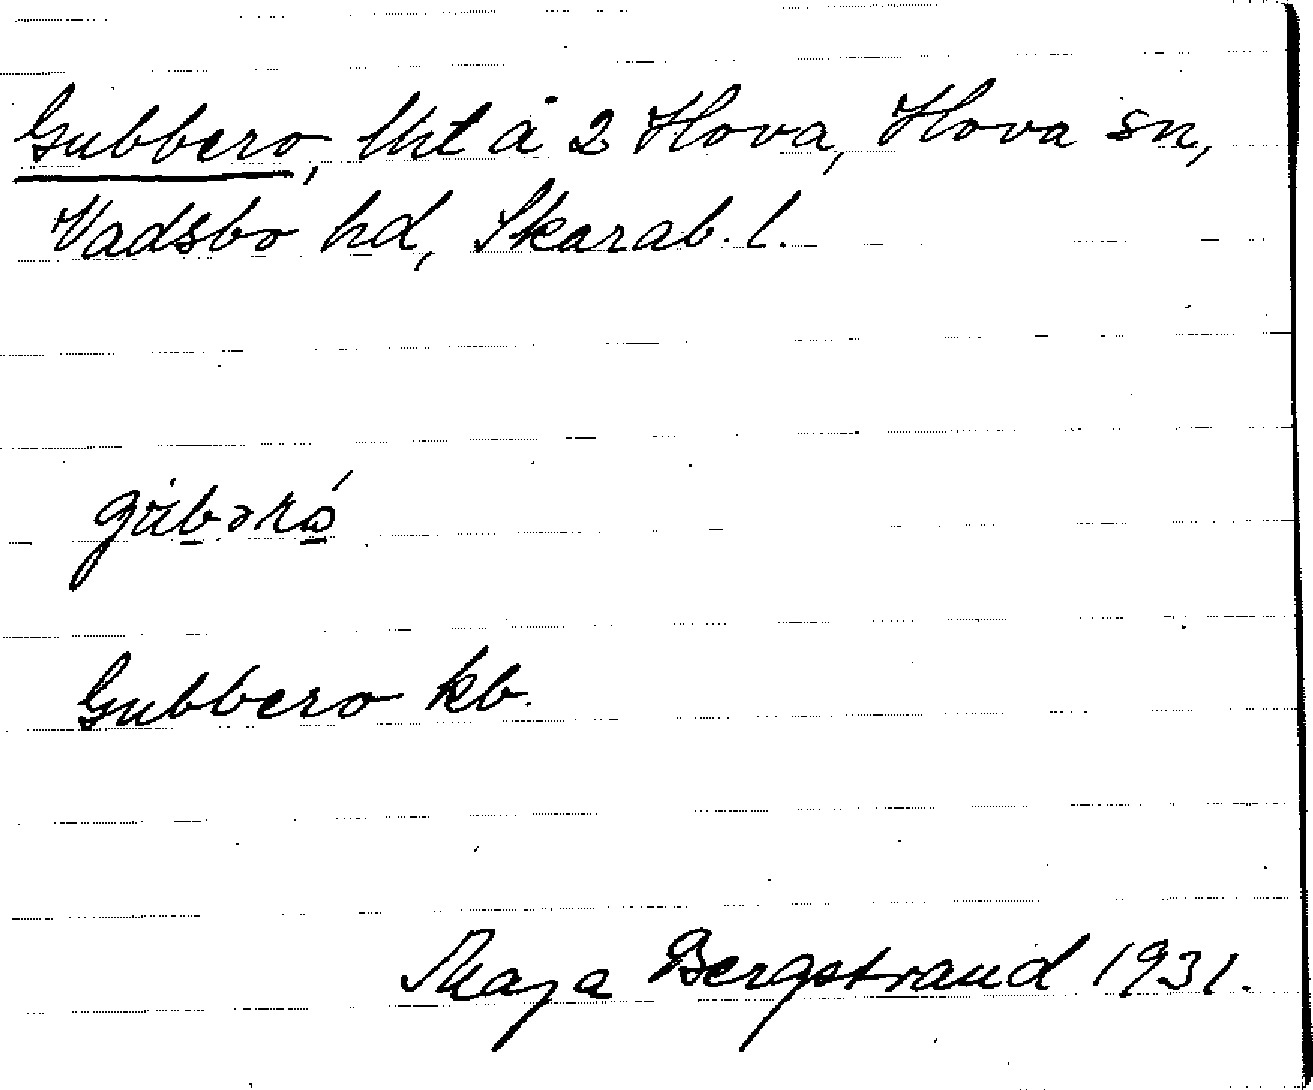 Gubbero, lht å 2 Hova, Hova sn,
Vadsbo hd, Skarab. l.
Gubbero kb.
Maja Bergstrand 1931.